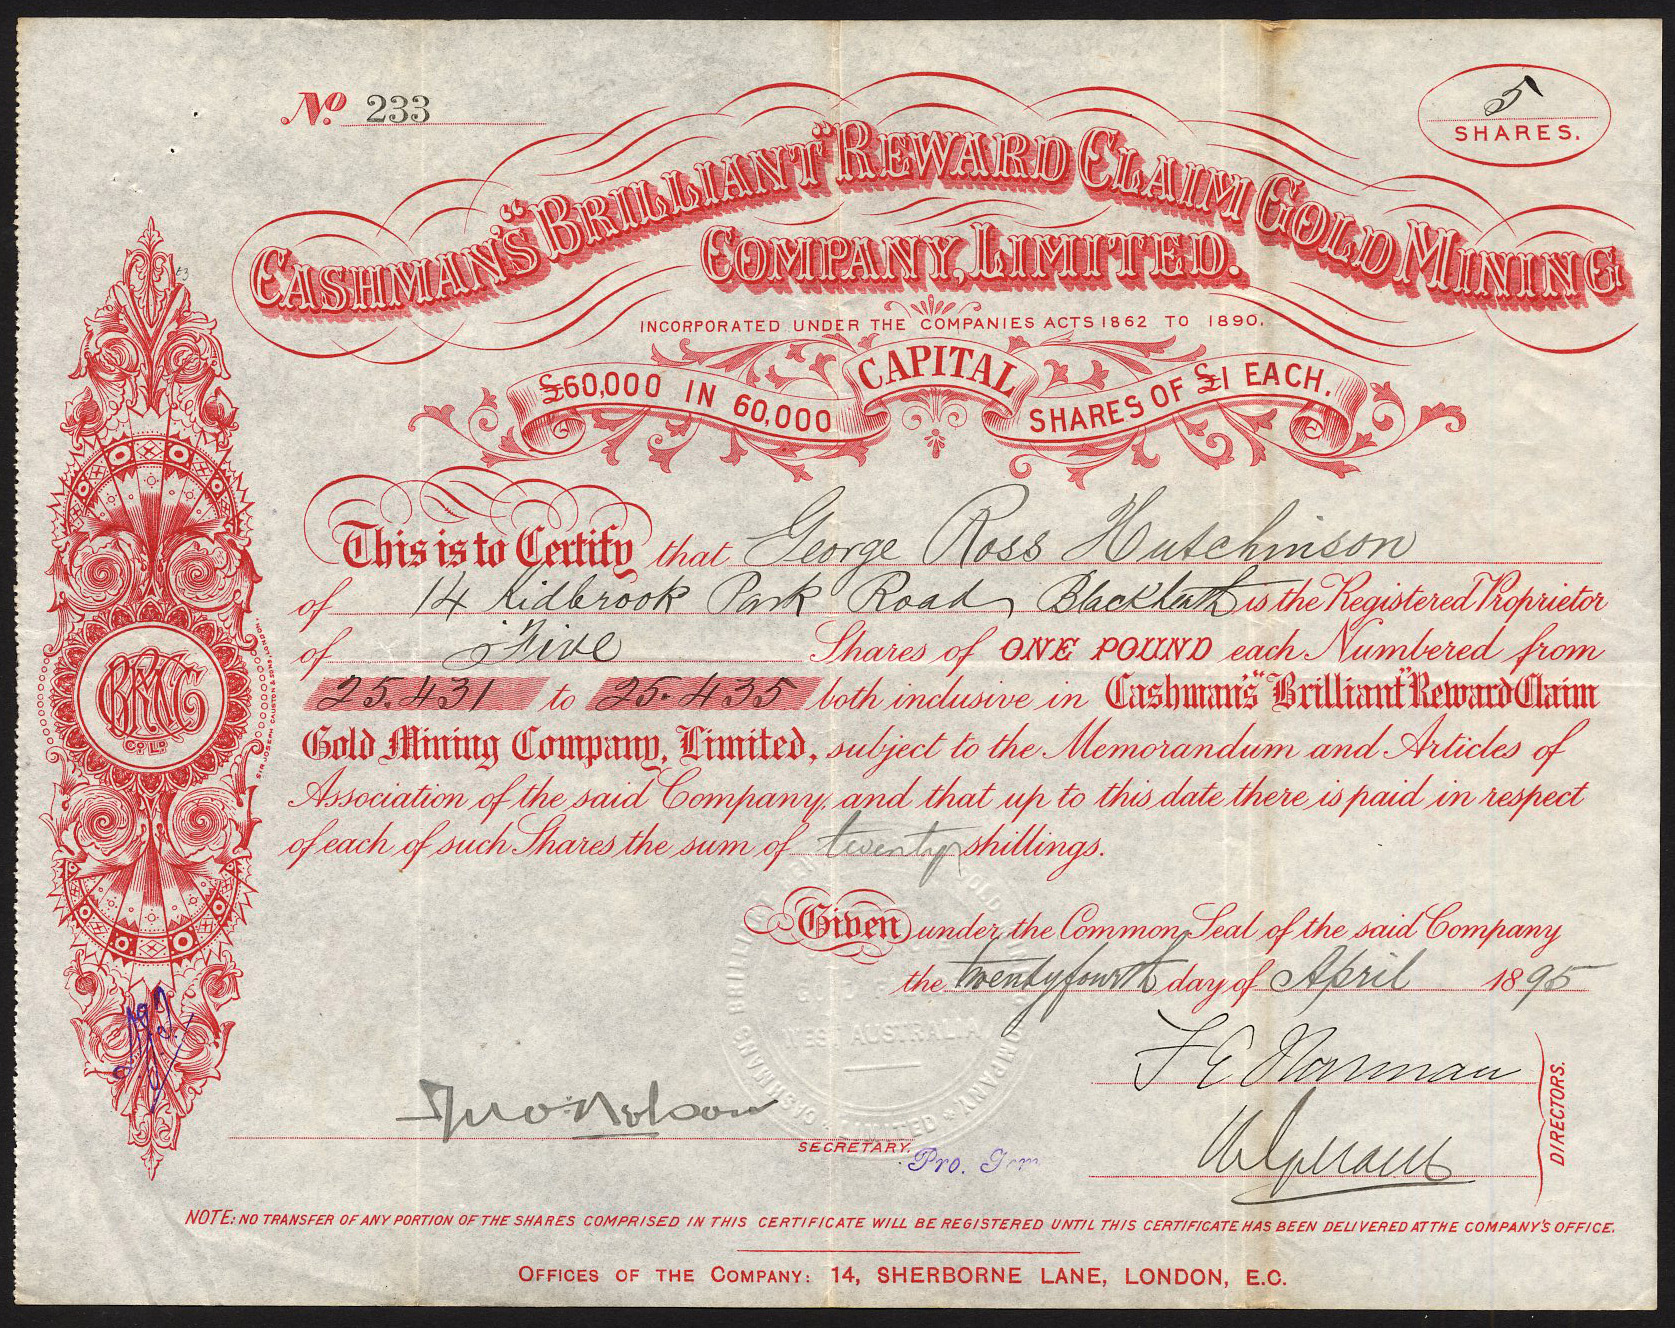 No. 233
5
SHARES.
CASHMAN'S "BRILLIANT" REWARD CLAIM GOLD MINING
COMPANY, LIMITED.
INCORPORATED UNDER THE COMPANIES ACTS 1862 TO 1890.
CAPITAL
£60,000 IN 60,000 SHARES OF £1 EACH.
This is to Certify that George Ross Hutchinson
of 14 Kidbrook Park Road Blackheath is the Registered Proprietor
of Five Shares of ONE POUND each Numbered from
25.431 to 25.435 both inclusive in Cashman's "Brilliant" Reward Claim
Gold Mining Company, Limited, subject to the Memorandum and Articles of
Association of the said Company, and that up to this date there is paid in respect
of each of such Shares the sum of twenty shillings.
Given under the Common Seal of the said Company
the twentyfourth day of April 1895
F E Norman
Jno. Nelson
SECRETARY.
Pro. Tem
DIRECTORS.
NOTE: NO TRANSFER OF ANY PORTION OF THE SHARES COMPRISED IN THIS CERTIFICATE WILL BE REGISTERED UNTIL THIS CERTIFICATE HAS BEEN DELIVERED AT THE COMPANY'S OFFICE.
OFFICES OF THE COMPANY: 14, SHERBORNE LANE, LONDON, E.C.
SIR JOSEPH CAUSTON & SONS, LONDON.
CO LD
AUSTRALIA
LIMITED